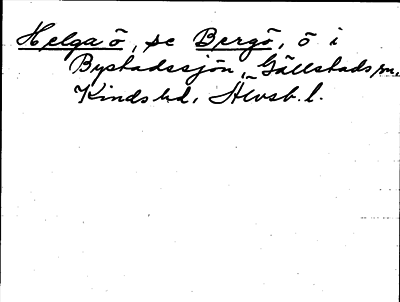 Helga ö, se Bergö, ö i
Bystadssjön, Gällstads sn,
Kinds hd, Älvsb. l.